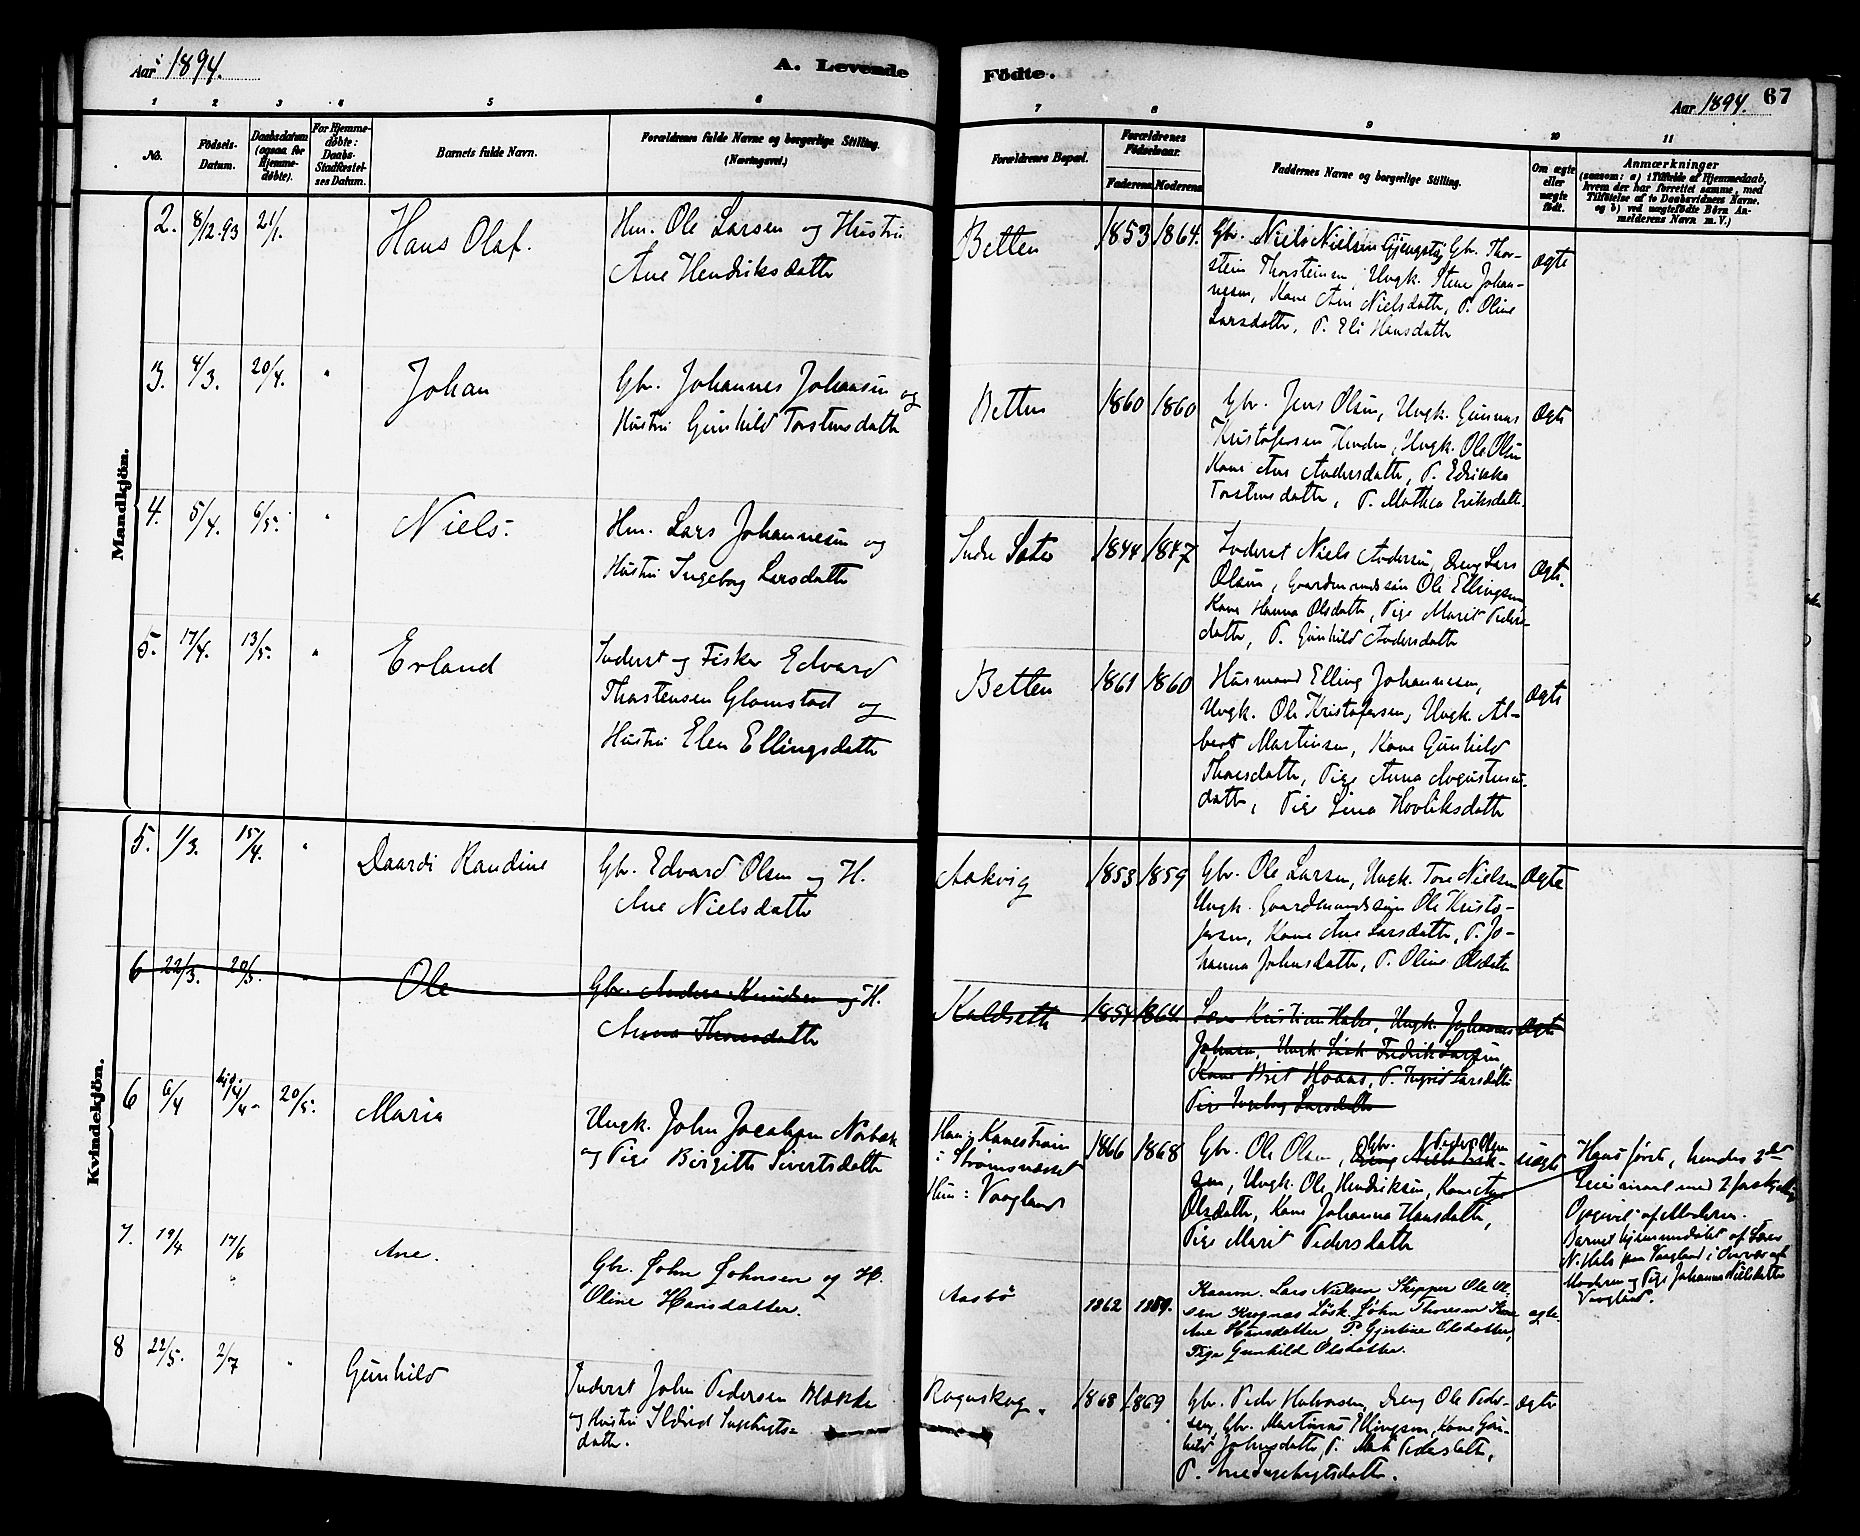 Aar 1894.
A. Levende Födte.
Aar 1894. 67
1 2 3 4 5 6 7 8 9 10 11
No.
Födsels-Datum.
Daabsdatum (ogsaa for Hjemmedøbte).
For Hjemmedøbte: Daabs-Stadfæstelses Datum.
Barnets fulde Navn.
Forældrenes fulde Navne og borgerlige Stilling.
(Næringsvei.)
Forældrenes Bopæl.
Forældrenes Födselsaar.
Faderens. Moderens.
Faddernes Navne og borgerlige Stilling.
Om ægte eller uægte født.
Anmærkninger
(saasom: a) i Tilfælde af Hjemmedaab,
hvem der har forrettet samme, med
Tilføielse af to Daabsvidners Navne.
og b) ved uægtefødte Børn Anmelderens Navn m. V.)
Mandkjön.
2. 8/12.93 21/1. Hans Olaf.
Hm. Ole Larsen og Hustru
Ane Hendriksdatter
Betten 1853 1864.
Gbr. Niels Nielsen Gjengstø, Gbr. Thor-
stein Thorsteinsen, Ungk. Stene Johan-
nesen, Kone Ane Nielsdatter, P. Oline
Larsdatter, P. Eli Hansdatter
Ægte
3. 4/3. 20/4. " Johan
Gbr. Johannes Johansen og
Hustru Gunhild Torstensdatter
Betten 1860 1860
Gbr. Jens Olsen, Ungk. Gunnar
Kristofersen , Ungk. Ole Olsen
Kone Ane Andersdatter, P. Edrikka
Torstensdatter, P. Mathea Eriksdatter.
Ægte
4. 5/4. 6/5. " Niels.
Hm. Lars Johannesen og
Hustru Ingeborg Larsdatter
Indre Sæter 1844 1847
Inderst Niels Andersen, Dreng Lars
Olsen, Gaardmandssøn Ole Ellingsen
Kone Hanna Olsdatter, Pige Marit Peders-
datter, P. Gunhild Andersdatter
Ægte.
5. 17/4. 13/5. " Erland
Inderst og Fisker Edvard
Thorstensen Glomstad og
Hustru Elen Ellingsdatter
Betten 1861 1860
Husmand Elling Johannesen,
Ungk. Ole Kristofersen, Ungk. Al-
bert Martinsen, Kone Gunhild
Thoresdatter, Pige Anna Augustinus-
datter, Pige Lina Hovliksdatter
Ægte
Kvindekjön.
5. 1/3. 15/4. " Daardi Randine
Gbr. Edvard Olsen og H.
Ane Nielsdatter
Aakvig 1853 1859
Gbr. Ole Larsen, Ungk. Tore Nielsen
Ungk. Gaardmandssøn Ole Kristo-
fersen, Kone Ane Larsdatter, P. Jo-
hanna Johnsdatter, P. Oline Olsdatter
Ægte
6 22/3. 20/5. " Ole
Gbr. Anders Knudsen og H.
Anna Thoresdatter
Kaldseth 1854 1864
Lærer Kristian Hals, Ungk. Johannes
Johnsen, Ungk. Fredrik Larsen
Kone Brit Hoaas, P. Ingrid Larsdatter
Pige Ingeborg Larsdatter
Ægte
6 6/4 hjd. 14/4- 20/5. Maria
Ungk. John Jacobsen Norbek
og Pige Birgitte Sivertsdatter
Han: Kanestrøm
i Strømsnæsset
Hun: Vaagland
1866 1868
Gbr. Ole Olsen, Gbr. Peder Olsen
Dreng Niels
Ungk. Ole Hendriksen, Kone Ane
Olsdatter, Kone Johanna Hansdatter,
Pige Marit Pedersdatter
uægte
Hans første, hendes 3die
Leiermaal med 2 forskjellige
Opgivet af Moderen.
Barnet hjemmedøbt af Lærer
N. Hals paa Vaagland i Overvær af
Moderen og Pige Johanna Nielsdatter
Vaagland.
7. 19/4 17/6 Ane.
Gbr. John Johnsen og H.
Oline Hansdatter.
Aasbø 1862 1859.
Lars Nielsen Skipper Ole Ol-
sen Krognæs Løsk. John Thoresen Kone
Ane Hansdatter, P. Gjertine Olsdatter,
Pige Gunhild Olsdatter.
ægte.
8 22/5. 2/7 " Gunhild
Inderst John Pedersen
og Hustru Ildrid Ingebrigts-
datter.
Rognskog. 1868 1869
Gbr. Peder Halvorsen, Dreng Ole Peder-
sen, Gbr. Martinus Ellingsen, Kone Gun-
hild Johnsdatter, P. Marit Pedersdatter,
P. Ane Ingebrigtsdatter.
Ægte